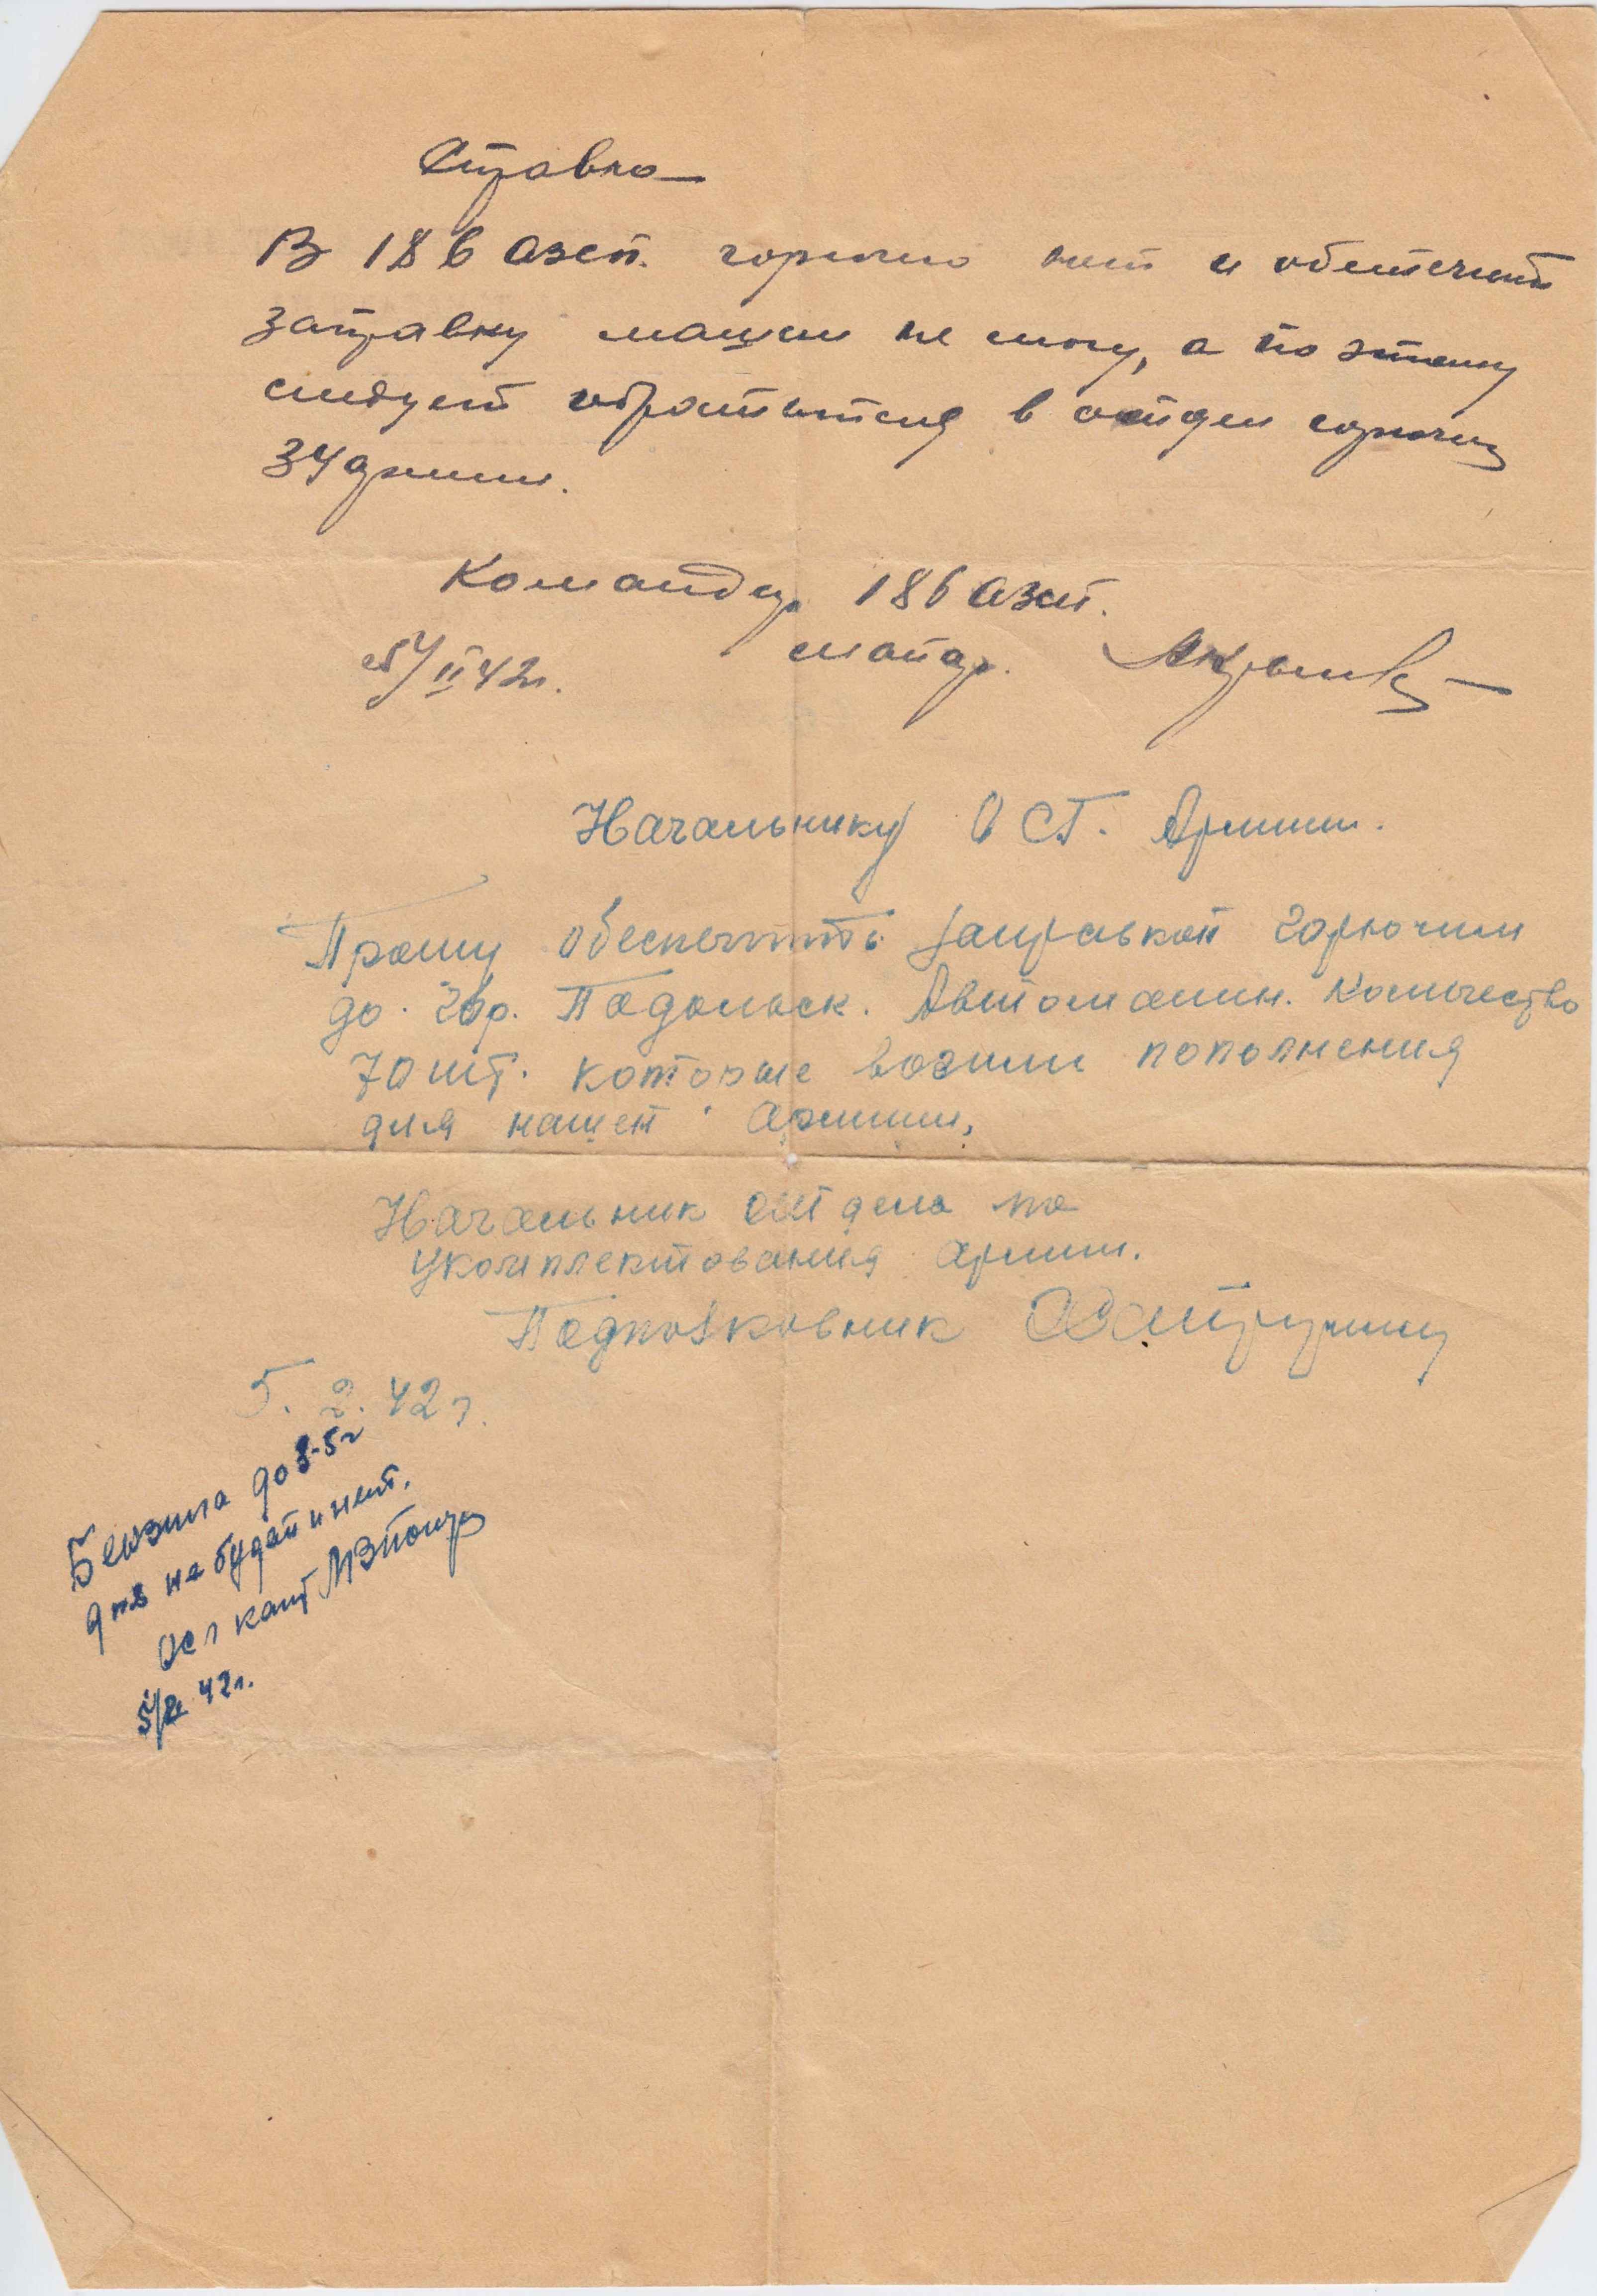 Справка
В 186 азсп. горючего нет и обеспечить
заправку машин не могу, а по этому
следует обратиться в отдел горючего
34 армии.
Командир 186 азсп.
майор
5/II 42г.
Начальнику ОСГ. Армии.
Прошу обеспечить заправкой горючим
до. гор. Подольск. Автомашин. Количество
70 шт. которые возили пополнения
для нашей Армии,
Начальник отдела по
укомплектования армии.
Подполковник
5. 2. 42 г.
Бензина до 3-5
дня не будет и нет.
5/II 42г.